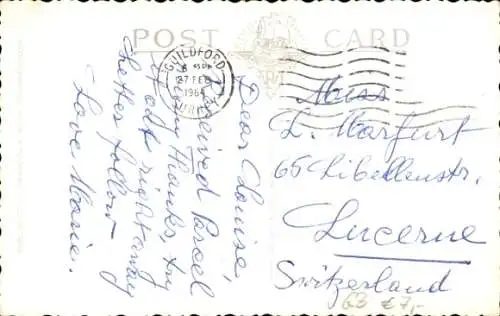 POST CARD
GUILDFORD
27 FEB
1964
SURREY
Dear Louise,
Received Parcel
Many Thanks, try
it off right away
Letter follow
Love Marie.
Miss
L. Marfurt
65 Libellenstr.
Lucerne
Switzerland
63 € 7,-